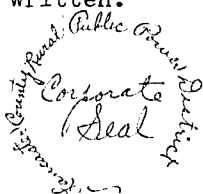 written.
Lancaster County Rural Public Power District
Corporate
Seal